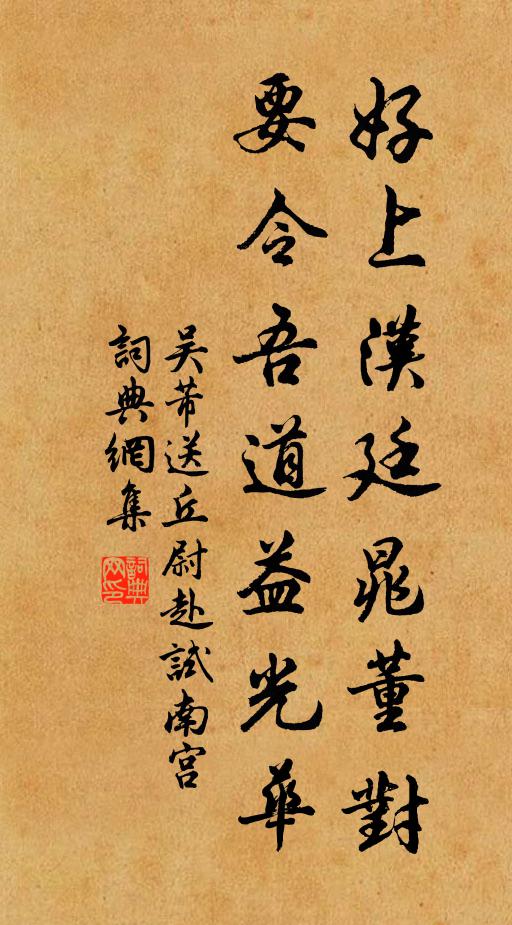 好上漢廷晁董對
要令吾道益光華
吴芾送丘尉赴試南宫
詞典網集
詞典网印